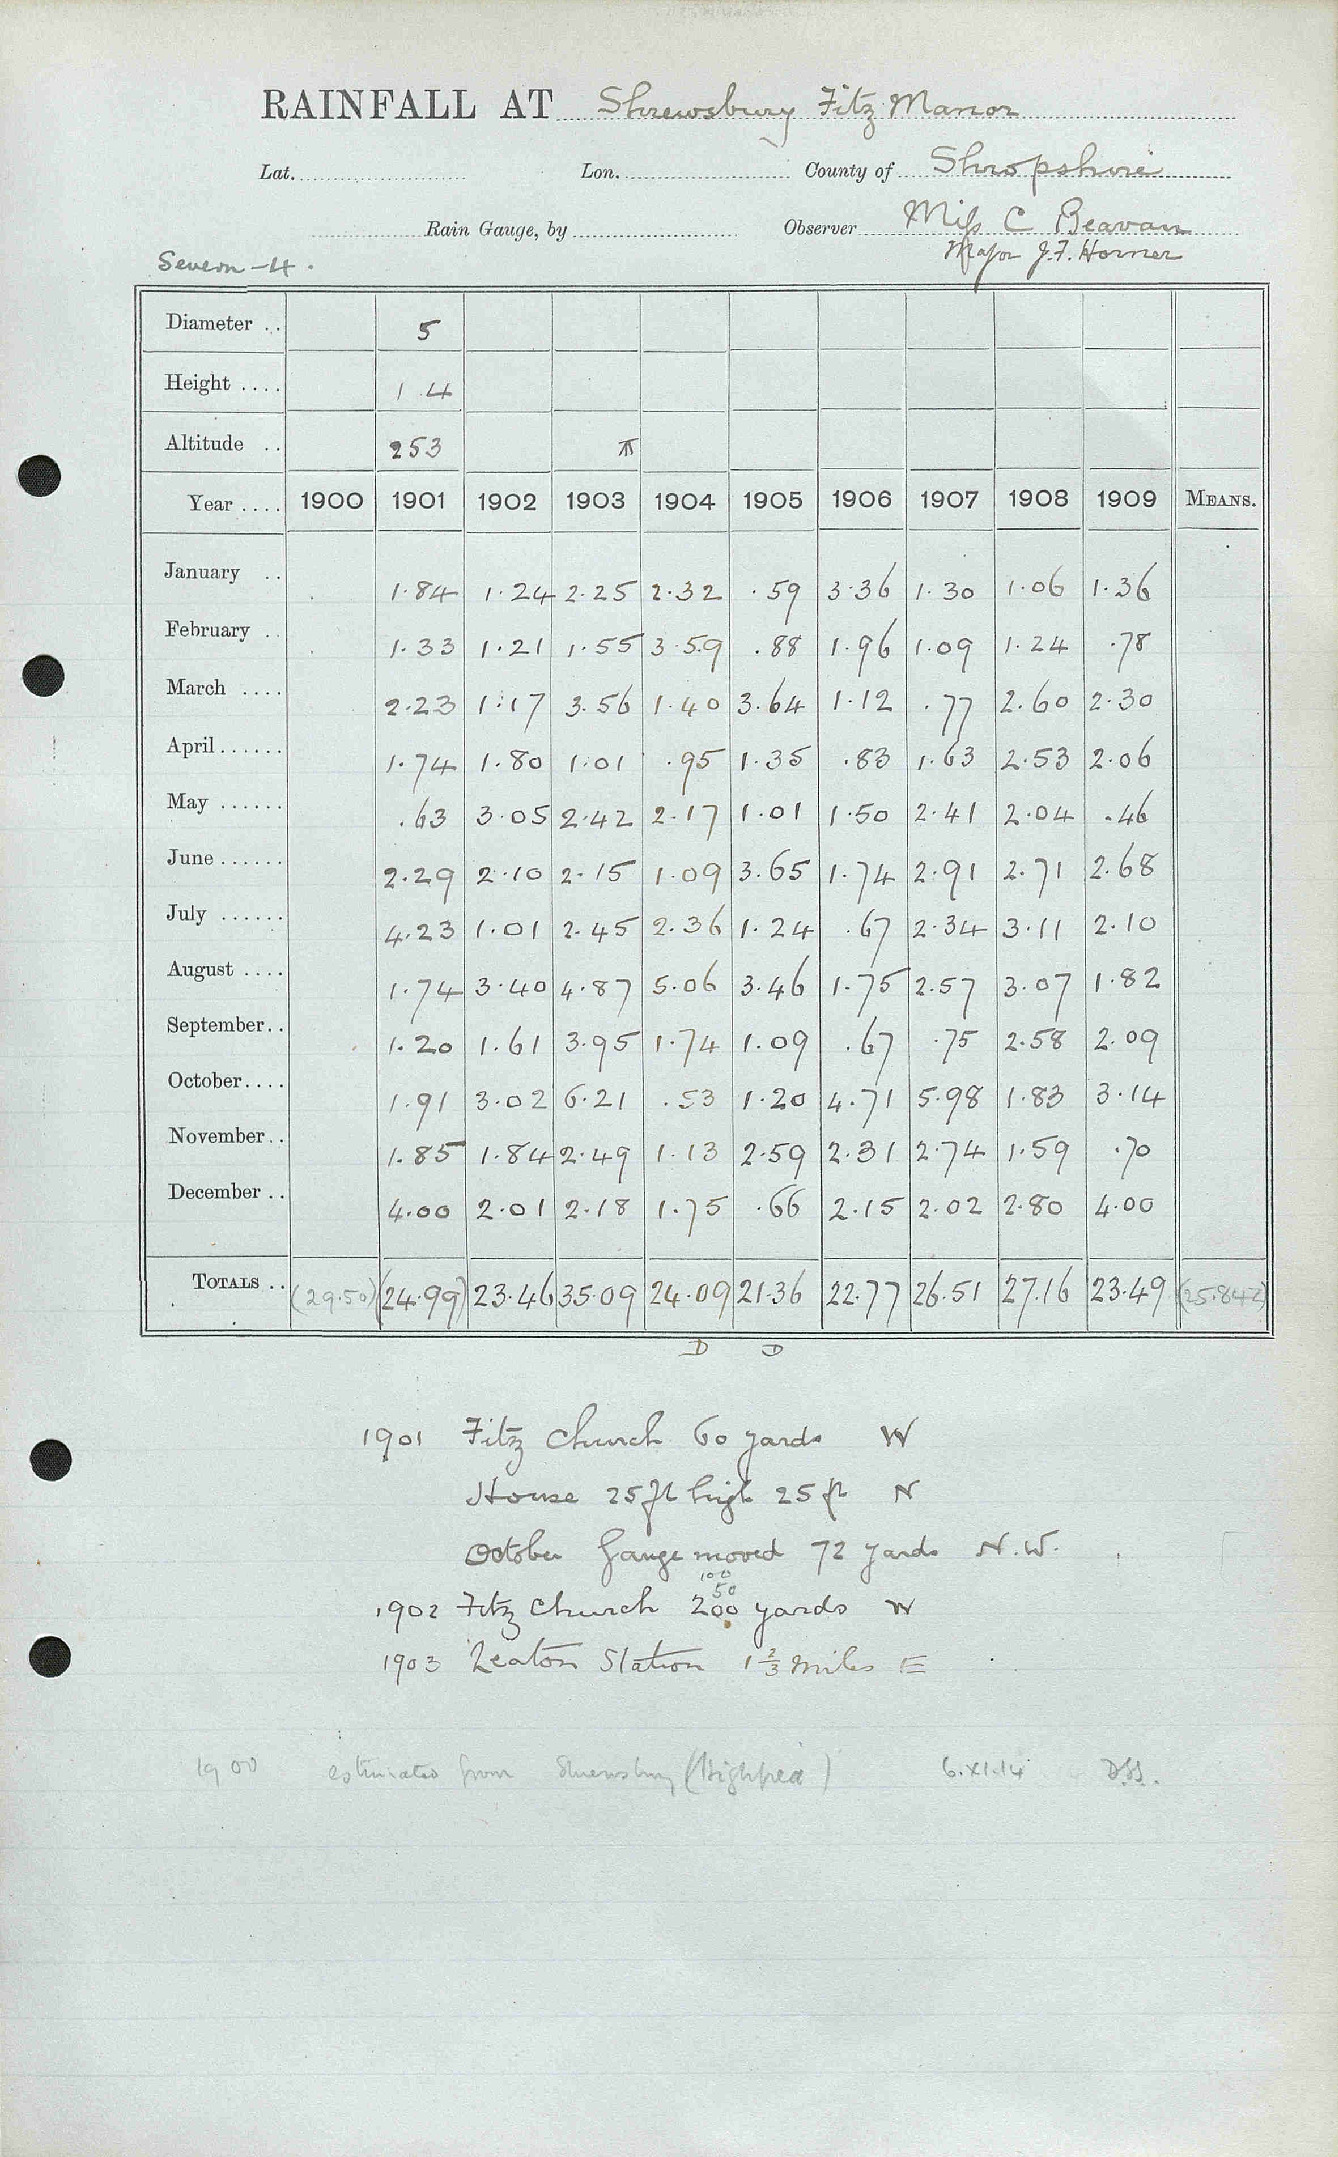 RAINFALL AT Shrewsbury Fitz Manor
Lat. Lon. County of Shropshire
Rain Gauge, by Observer Miss C Beavan
Major J.F. Horner
Severn - 4.
Diameter .. 5
Height .... 1 4
Altitude .. 253
Year .... 1900 1901 1902 1903 1904 1905 1906 1907 1908 1909 MEANS.
January .. 1.84 1.24 2.25 2.32 .59 3.36 1.30 1.06 1.36
February .. 1.33 1.21 1.55 3.59 .88 1.96 1.09 1.24 .78
March .... 2.23 1.17 3.56 1.40 3.64 1.12 .77 2.60 2.30
April ...... 1.74 1.80 1.01 .95 1.35 .83 1.63 2.53 2.06
May ...... .63 3.05 2.42 2.17 1.01 1.50 2.41 2.04 .46
June ...... 2.29 2.10 2.15 1.09 3.65 1.74 2.91 2.71 2.68
July ...... 4.23 1.01 2.45 2.36 1.24 .67 2.34 3.11 2.10
August .... 1.74 3.40 4.87 5.06 3.46 1.75 2.57 3.07 1.82
September.. 1.20 1.61 3.95 1.74 1.09 .67 .75 2.58 2.09
October.... 1.91 3.02 6.21 .53 1.20 4.71 5.98 1.83 3.14
November.. 1.85 1.84 2.49 1.13 2.59 2.31 2.74 1.59 .70
December .. 4.00 2.01 2.18 1.75 .66 2.15 2.02 2.80 4.00
TOTALS .. (29.50) (24.99) 23.46 35.09 24.09 21.36 22.77 26.51 27.16 23.49 (25.842)
D D
1901 Fitz Church 60 yards W
House 25 ft high 25 ft N
October Gauge moved 72 yards N.W.
100
50
1902 Fitz Church 200 yards W
1903 Leaton Station 1 2/3 miles E
1900 estimated from Shrewsbury (Highfield) 6.XI.14